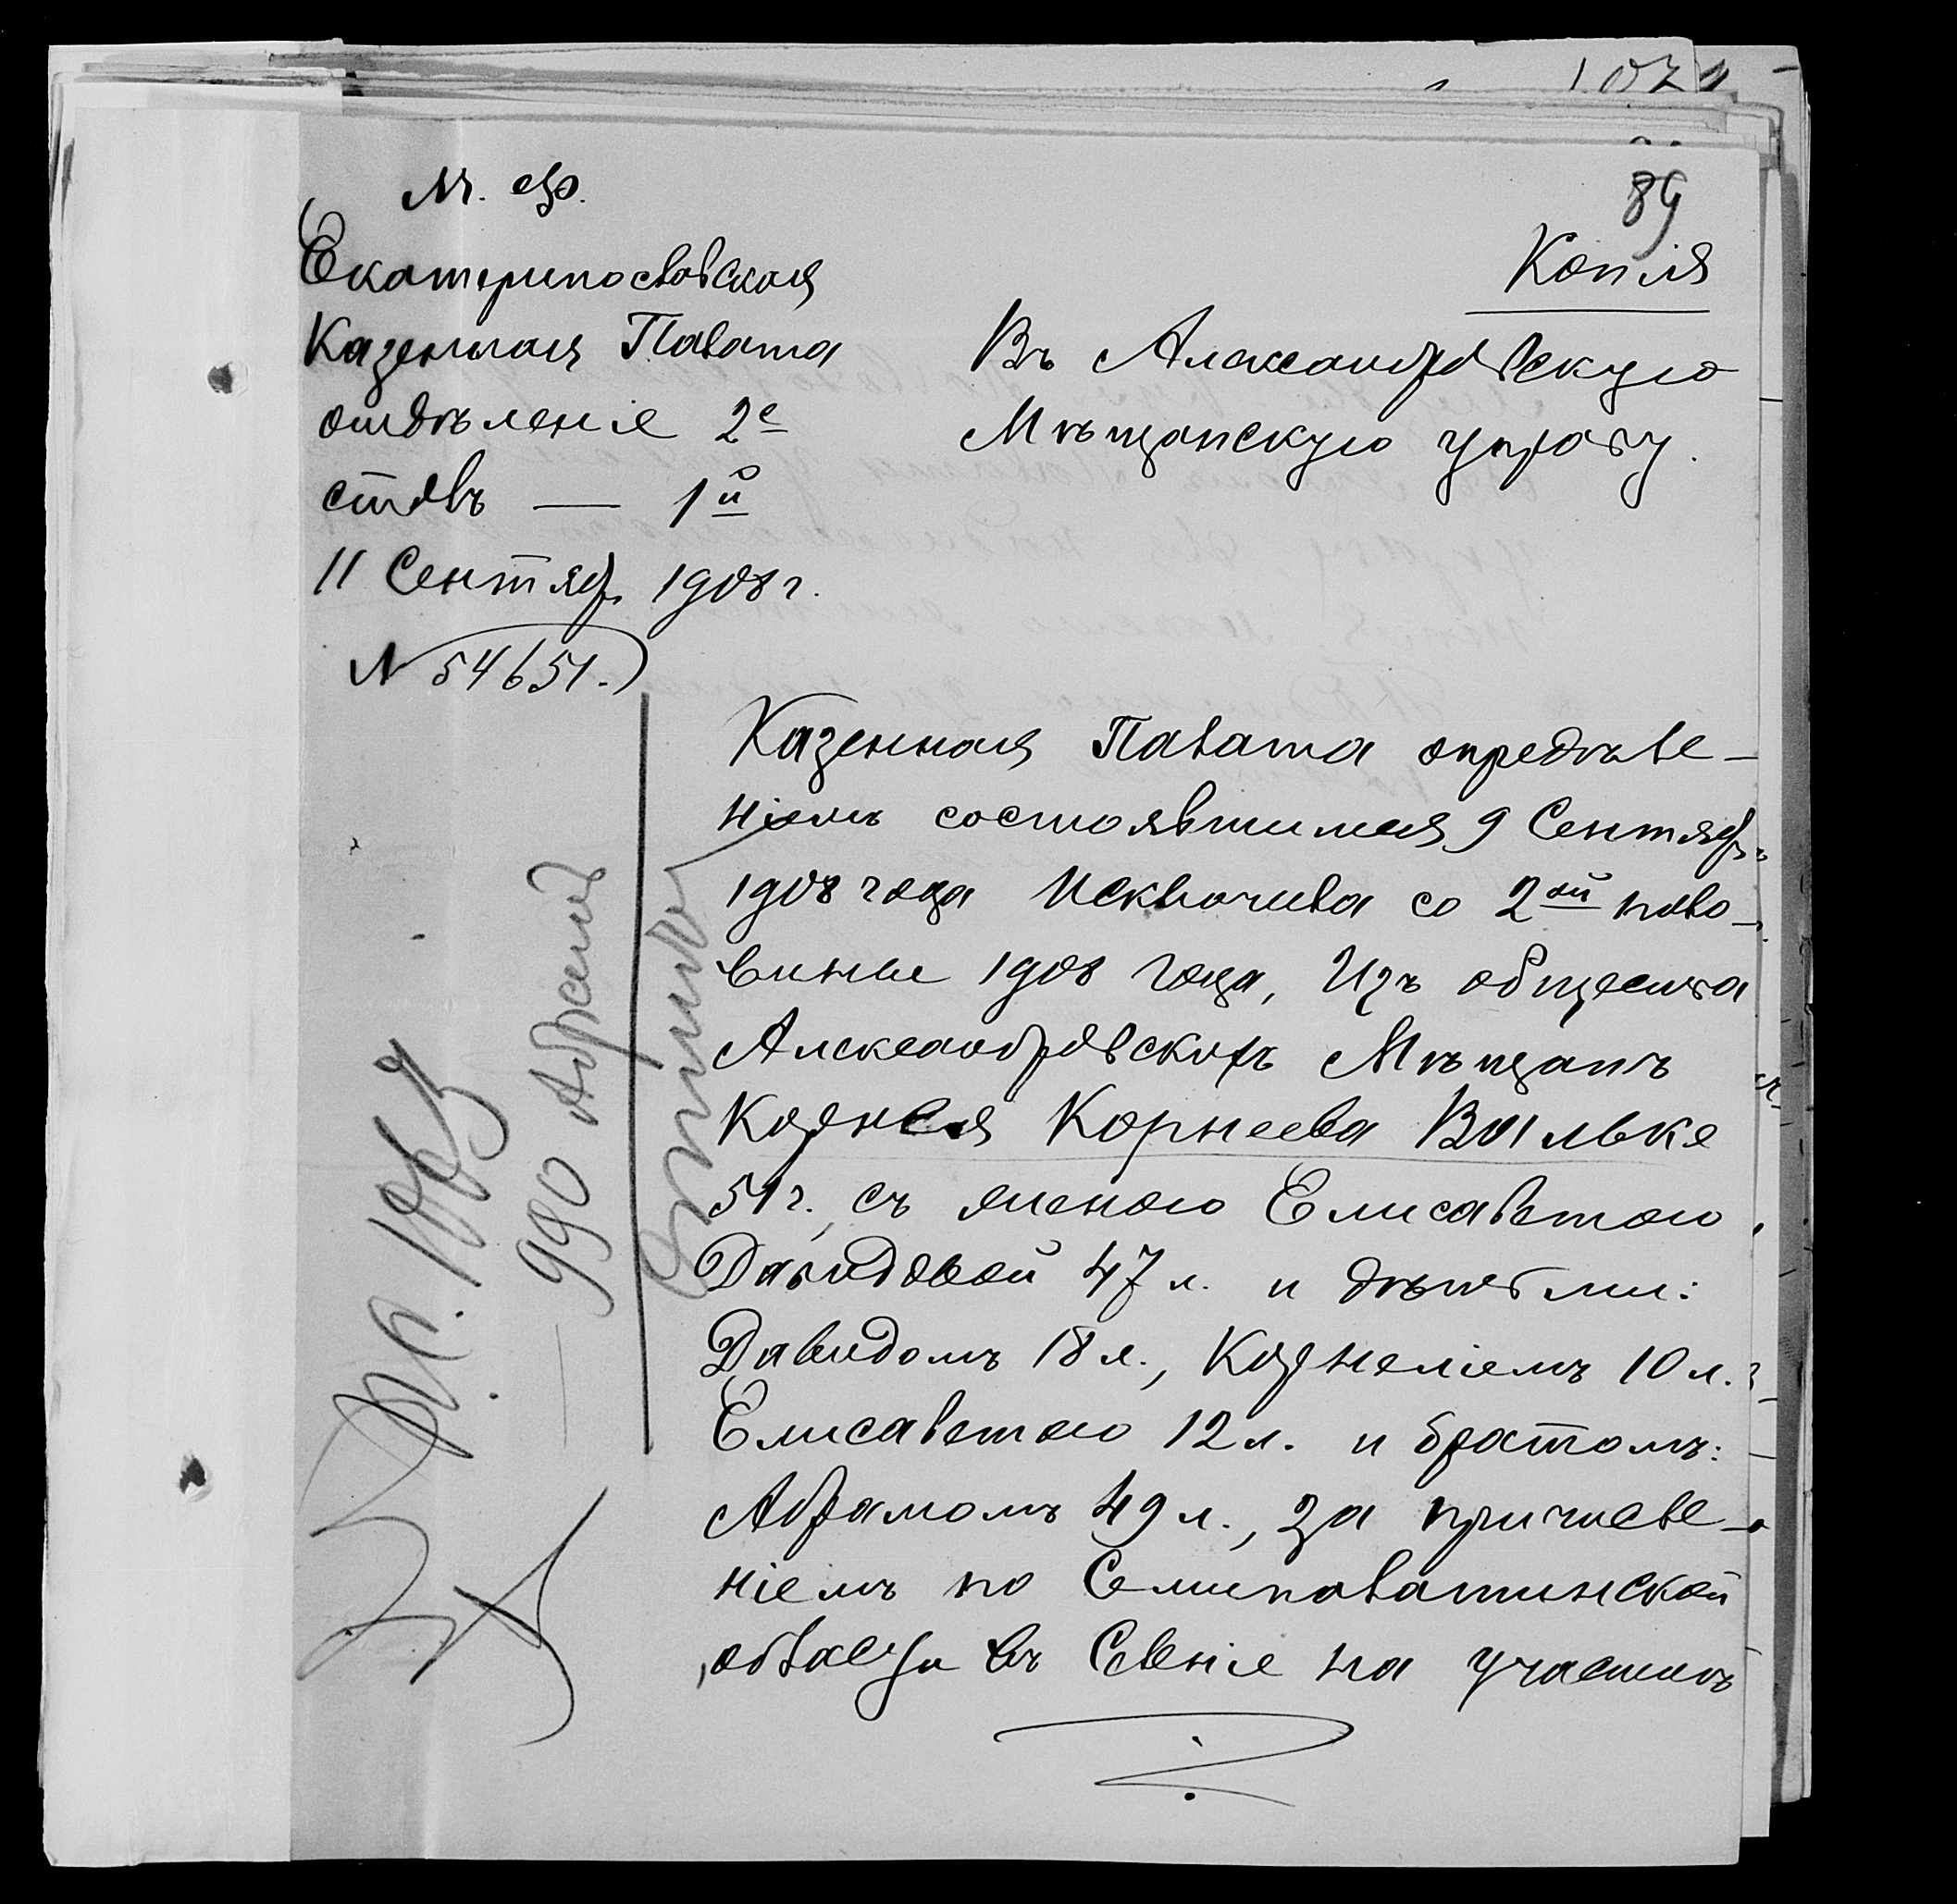 1071
89
М. Ф.
Копія
Екатеринославская
Казенная Палата
отдѣленіе 2е
столъ — 1й
11 Сентяб. 1908 г.
N 54651.
Въ Александровскую
Мѣщанскую управу.
Казенная Палата опредѣле-
ніемъ состоявшимся 9 Сентябр.
1908 года исключила со 2ой поло-
вины 1908 года, Изъ общества
Александровскихъ Мѣщанъ
Корнея Корнеева Вильке
51 г., съ женою Елисаветою
Давидовой 47 л. и дѣтьми:
Давидомъ 18 л., Корнеліемъ 10 л.
Елисаветою 12 л. и братомъ:
Абрамомъ 49 л., за причисле-
ніемъ по Семипалатинской
области въ Селеніе на участкѣ
990 Абрамъ